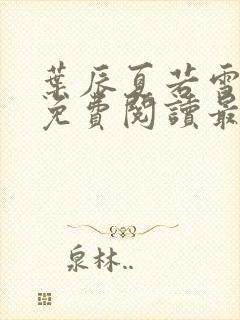 葉辰夏若雪
免費閱讀最
泉林..